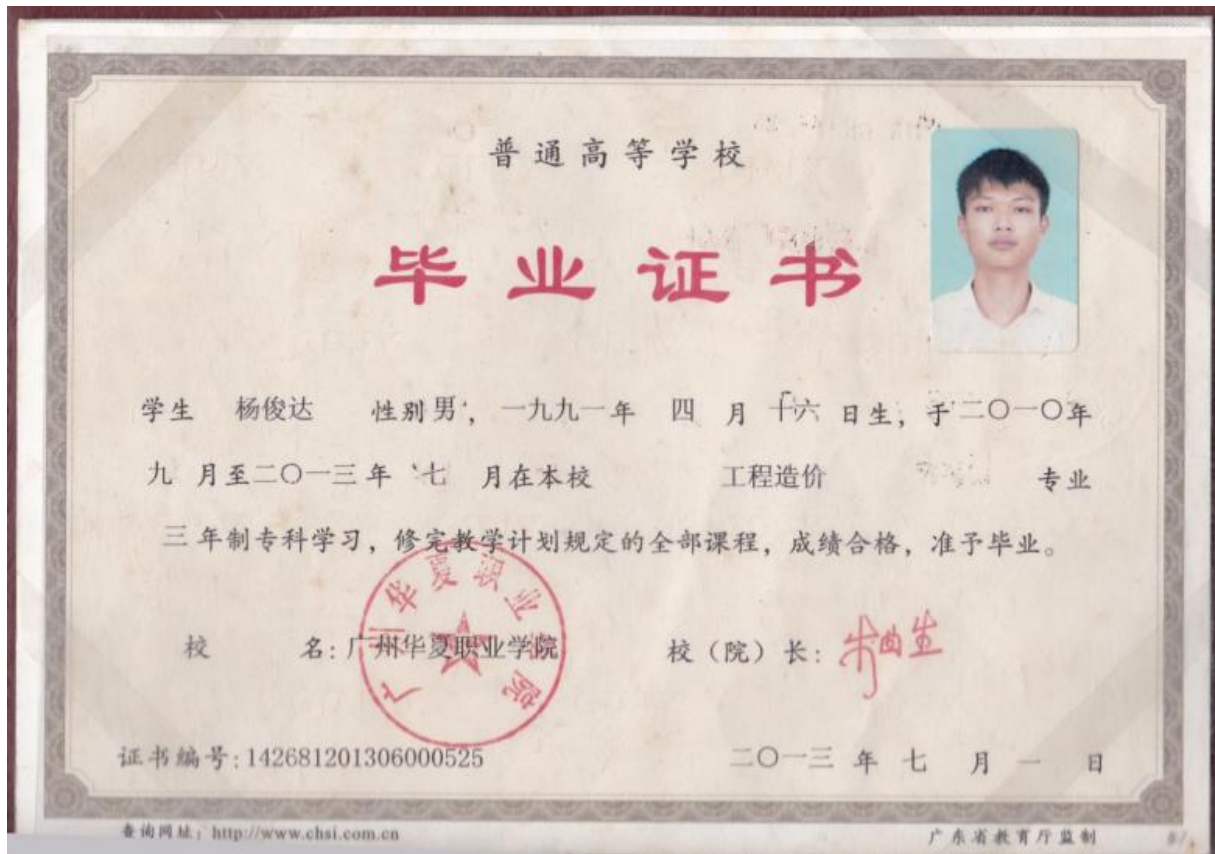 普通高等学校
毕业证书
学生 杨俊达 性别 男, 一九九一年 四 月 十六 日生, 于二〇一〇年
九 月至二〇一三年 七 月在本校 工程造价 专业
三年制专科学习, 修完教学计划规定的全部课程, 成绩合格, 准予毕业。
校 名: 广州华夏职业学院 校（院）长:
广州华夏职业学院
证书编号: 142681201306000525 二〇一三年 七 月 一 日
查询网址: http://www.chsi.com.cn 广东省教育厅监制